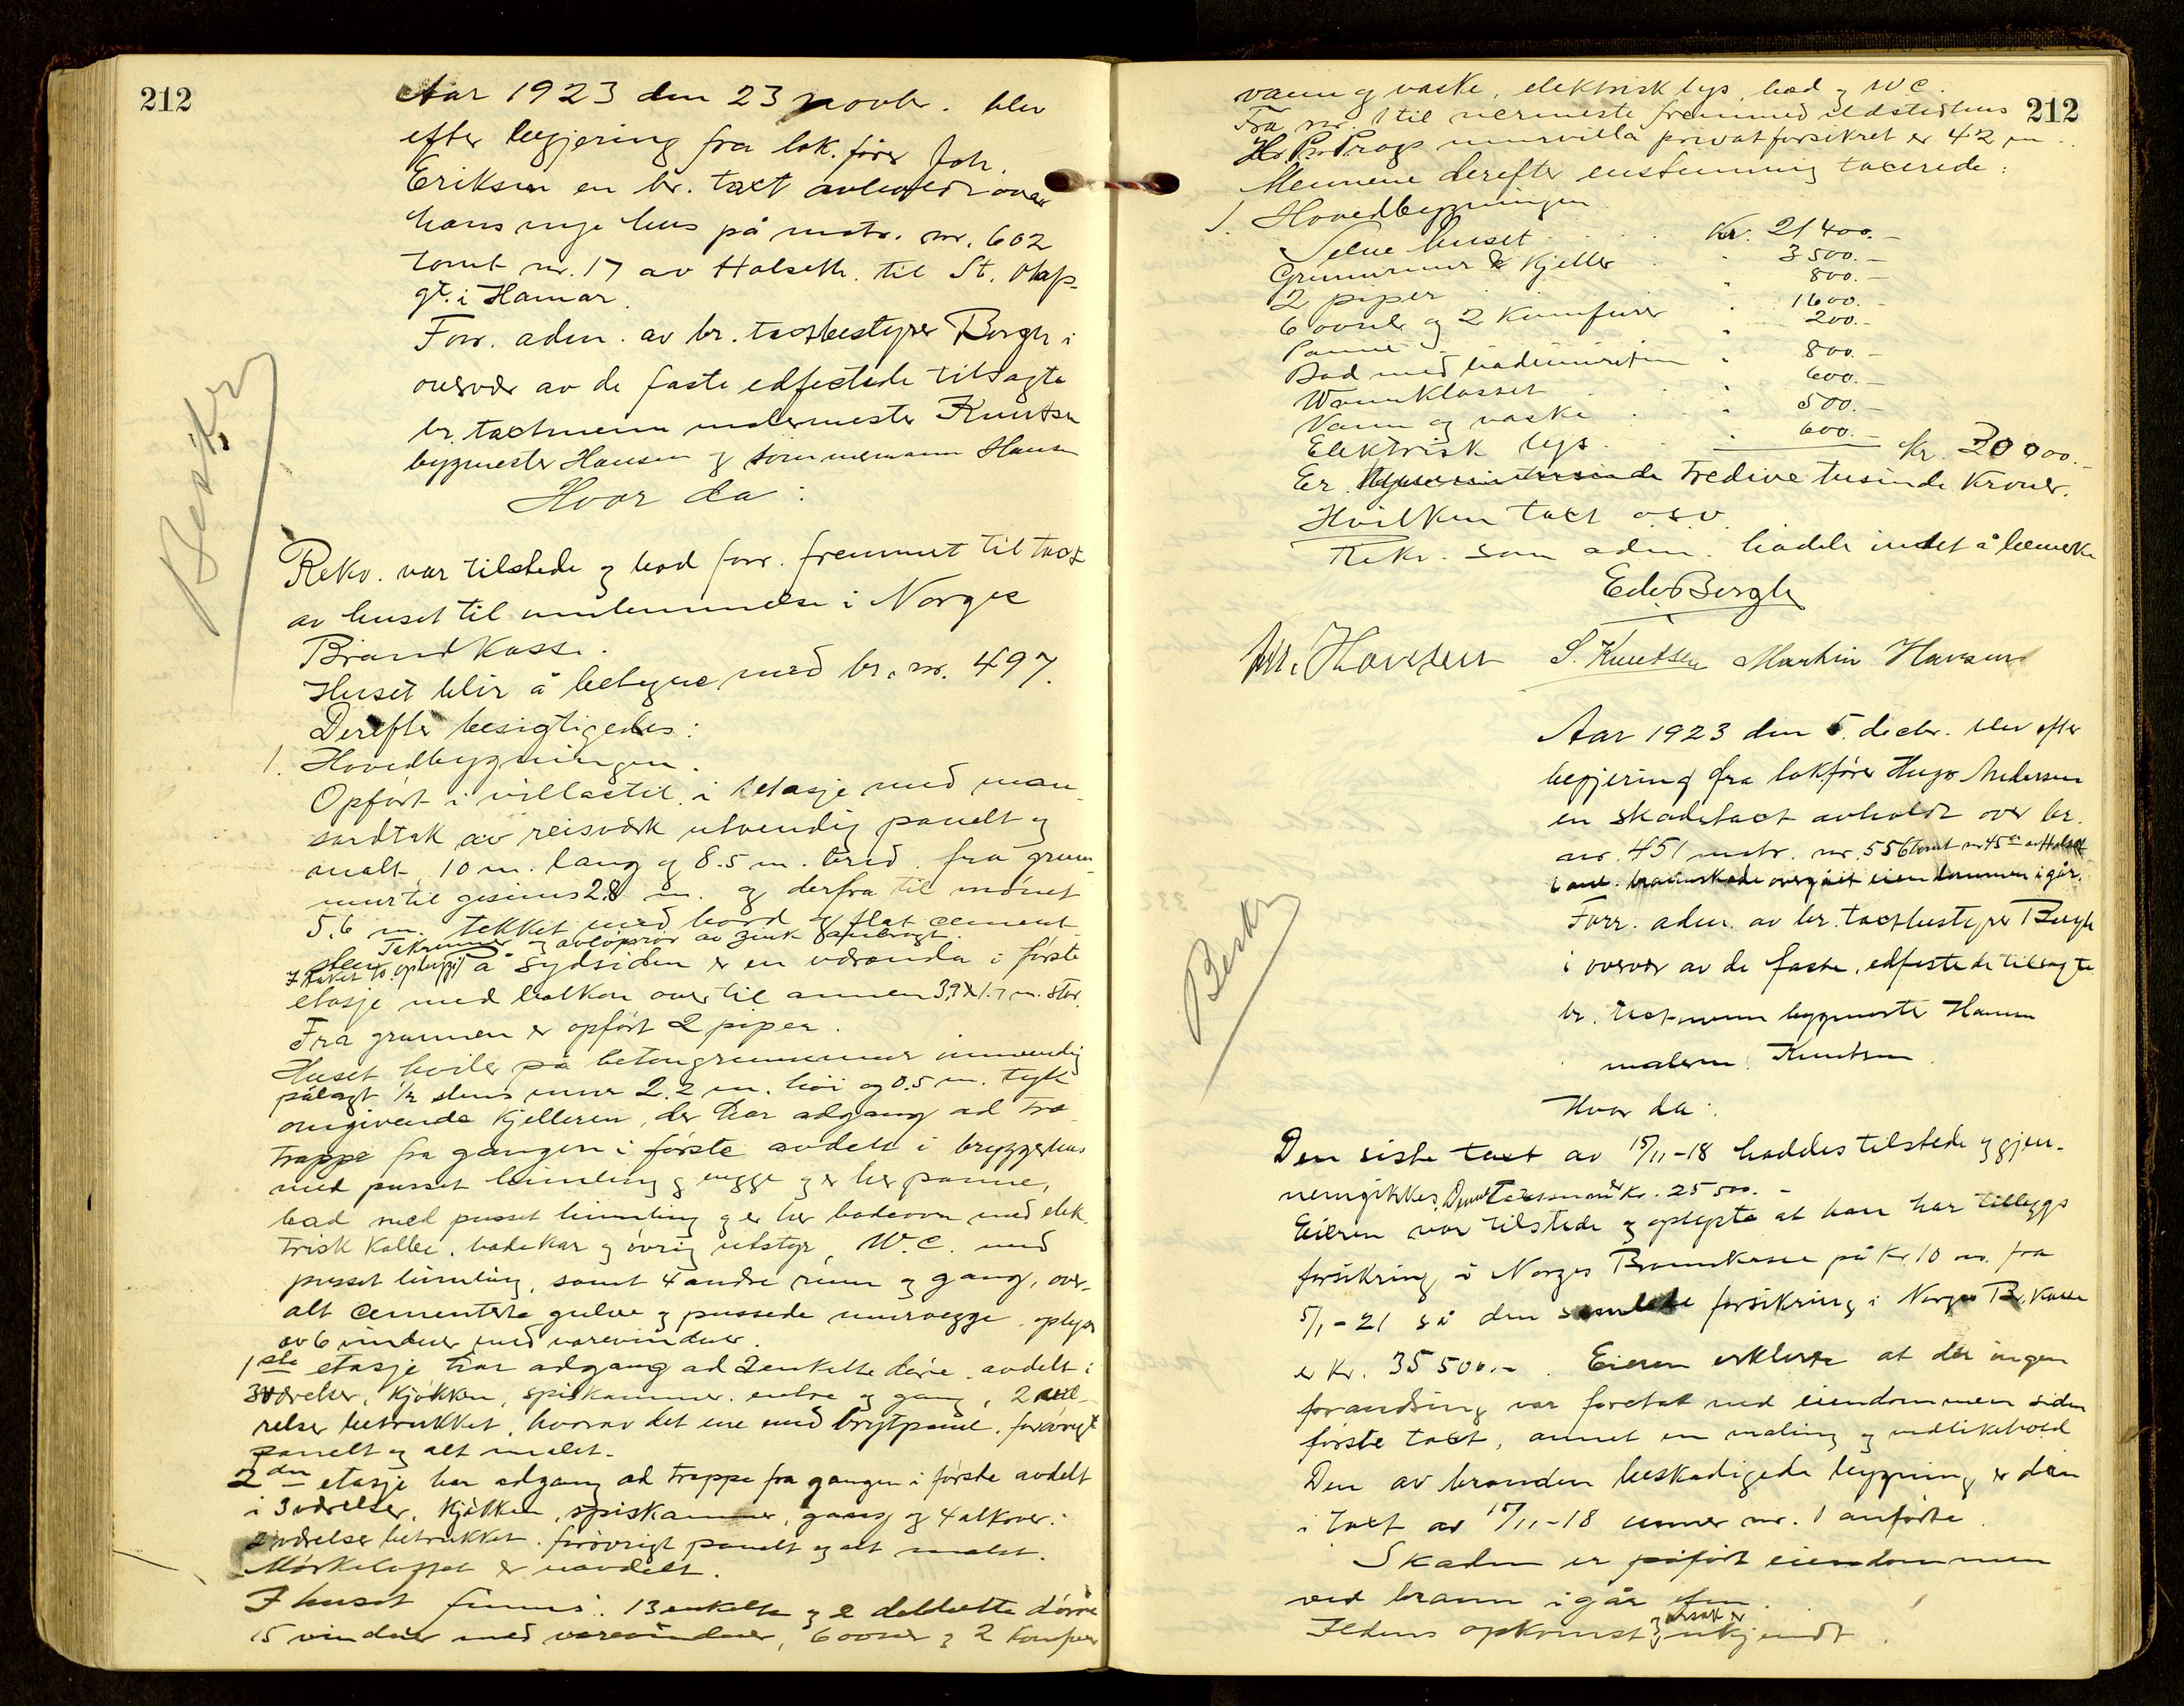 212
Aar 1923 den 23 novbr. blev
efter begjering fra lok. fører Joh.
Eriksen en br. taxt avholdt over
hans nye hus på matr. nr. 602
tomt nr. 17 av Halseth til St. Olafs-
gt. i Hamar.
Forr. adm. av br. taxtbestyrer Bergh i
overvær av de faste edfestede tilsagte
br. taxtmenn malermester Knutsen
bygmester Hansen og tømmermann Hansen
Hvor da:
Beskr
Rekv. var tilstede og bad forr. fremmet til taxt
av huset til innlemmelse i Norges
Brandkasse.
Huset blir å betegne med br. nr. 497.
Derefter besigtigedes:
1. Hovedbygningen.
Opført i villastil i 1 etasje med man-
sardtak av reisverk utvendig panelt og
malt, 10 m. lang og 8.5 m. bred. fra grunn-
mur til gesims 2.8 m. og derfra til mønet
5.6 m. tekket med bord og flat cement-
sten. Takrenner og avløpsrør av zink
På sydsiden er en veranda i første
etasje med balkon over til annen 3.9 x 1.7 m. stor.
Fra grunnen er opført 2 piper.
Huset hviler på betongrunnmur innvendig
pålagt 1/2 stens mur 2.2 m. høi og 0.5 m. tyk
omgivende kjelleren, der har adgang ad tre
trappe fra gangen i første avdelt i bryggerhus
med pusset himling og vegge og er her panne,
bad med pusset himling og er her badeovn med elek-
trisk kolbe, badekar og øvrig utstyr, W.C. med
pusset himling, samt 4 andre rum og gang, over-
alt cementerte gulve og pussede murvegge, oplyst
av 6 vinduer med varevinduer.
1ste etasje har adgang ad 2 enkelte døre, avdelt i
3 værelser, kjøkken, spiskammer, entre og gang, 2 væ-
relser betrukket, hvorav det ene med brystpanel, forøvrigt
panelt og alt malet.
2den etasje har adgang ad trappe fra gangen i første avdelt
i 3 værelser, kjøkken, spiskammer, gang og 4 alkover.
2 værelser betrukket. forøvrigt panelt og alt malet.
Mørkeloftet er uavdelt.
I huset finnes: 13 enkelte og 2 dobbelte dørre
15 vinduer med varevinduer, 6 ovner og 2 komfyrer
212
vann og vaske, elektrisk lys, bad og W.C.
Fra nr. 1 til nermeste fremmed ildstedhus
murvilla privatforsikret er 42 m.
Mennene derefter enstemmig taxerede:
1. Hovedbygningen
Selve huset Kr. 21400.-
Grunnmur & kjeller 3500.-
2 piper 800.-
6 ovner og 2 komfurer 1600.-
Panne 200.-
Bad med badeinnretn 800.-
Wannklosset 600.-
Vann og vaske 500.-
Elektrisk lys 600.-
Kr. 30000.-
Er tredive tusinde kroner.
Hvilken taxt o.s.v.
Rekv. som adm. hadde intet å bemerke
Edv. Bergh
M. Hansen S. Knutsen Martin Hansen
Aar 1923 den 5. decbr. blev efter
begjering fra lokfører Hugo Andersen
en skadetaxt avholdt over br.
nr. 451 matr. nr. 556 tomt nr 45a av Halset
brannskade overgået eiendommen igår.
Forr. adm. av br. taxtbestyrer Bergh
i overvær av de faste, edfestede tilsagte
br. taxtmenn bygmester Hansen
malerm. Knutsen
Hvor da:
Beskr
Den siste taxt av 15/11-18 haddes tilstede og gjen-
nemgikkes. Denne taxtsum er kr. 25500.-
Eieren var tilstede og oplyste at han har tilleggs
forsikring i Norges Brannkasse på kr. 10 000. fra
5/1-21 så den samlede forsikring i Norges Br. kasse
er kr. 35500.-. Eieren erklerte at der ingen
forandring var foretat ved eiendommen siden
første taxt, annet en maling og vedlikehold
Den av branden beskadigede bygning er den
i taxt av 15/11-18 unner nr. 1 anførte.
Skaden er påført eiendommen
ved brann igår efm.
Ildens opkomst og årsak er ukjendt.